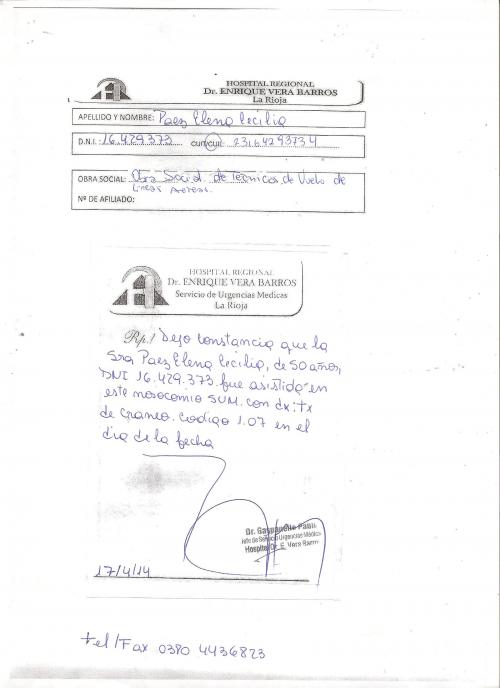 HOSPITAL REGIONAL
Dr. ENRIQUE VERA BARROS
La Rioja
APELLIDO Y NOMBRE: Paez Elena Cecilia
D.N.I.: 16.429.373 CUIT/CUIL: 23164293734
OBRA SOCIAL: Obra Social de Tecnicos de Vuelo de
Lineas Aereas.
Nº DE AFILIADO:
HOSPITAL REGIONAL
Dr. ENRIQUE VERA BARROS
Servicio de Urgencias Medicas
La Rioja
Rp./ Dejo constancia que la
Sra Paez Elena Cecilia, de 50 años,
DNI 16.429.373 fue asistida en
este nosocomio SUM. con dx: tx
de craneo. Codigo 1.07 en el
dia de la fecha
Dr. Pablo
Jefe de Servicio Urgencias Médicas
Hospital Dr. E. Vera Barros
17/4/14
tel/Fax 0380 4436823